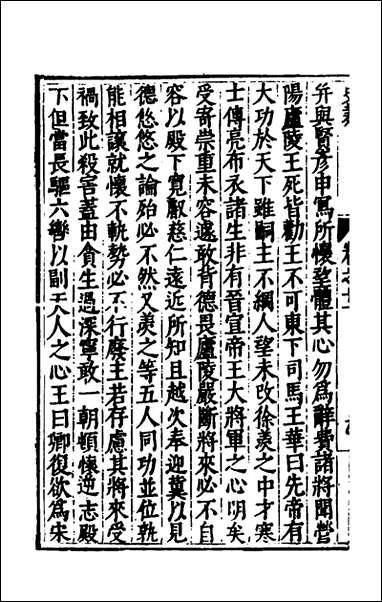 并與賢彥申寫所懷望體其心勿爲辭費諸將聞營
陽廬陵王死皆勸王不可東下司馬王華曰先帝有
大功於天下雖嗣主不綱人望未改徐羨之中才寒
士傅亮布衣諸生非有晉宣帝王大將軍之心明矣
受寄崇重未容遽敢背德畏廬陵嚴斷將來必不自
容以殿下寬叡慈仁遠近所知且越次奉迎冀以見
德悠悠之論殆必不然又羨之等五人同功並位孰
能相讓就懷不軌勢必不行廢王若存慮其將來受
禍致此殺害蓋由貪生過深寧敢一朝頓懷逆志殿
下但當長驅六轡以副天人之心王曰卿復欲爲宋